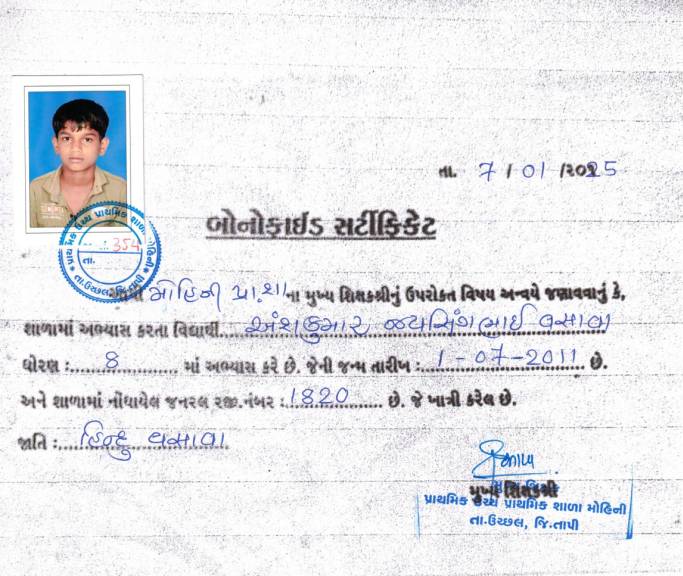 તા. 7 / 01 /૨૦25
બોનોફાઈડ સર્ટીફિકેટ
પ્રાથમિક ઉચ્ચ પ્રાથમિક શાળા
354
તા.
તા.ઉચ્છલ, જિ.તાપી
મોહિની પ્રા.શા ના મુખ્ય શિક્ષકશ્રીનું ઉપરોક્ત વિષય અન્વયે જણાવવાનું કે,
શાળામાં અભ્યાસ કરતા વિદ્યાર્થી અંશકુમાર જયસિંગભાઈ વસાવા
ધોરણ : 8 માં અભ્યાસ કરે છે. જેની જન્મ તારીખ : 1-07-2011 છે.
અને શાળામાં નોંધાયેલ જનરલ રજી.નંબર : 1820 છે. જે ખાત્રી કરેલ છે.
જાતિ : હિન્દુ વસાવા
મુખ્ય શિક્ષકશ્રી
પ્રાથમિક ઉચ્ચ પ્રાથમિક શાળા મોહિની
તા.ઉચ્છલ, જિ.તાપી